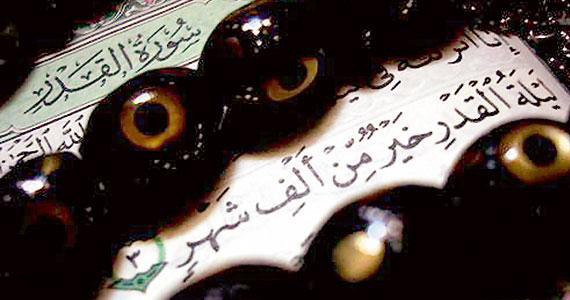 سُورَةُ القَدْرِ
إِنَّا أَنزَلْنَاهُ فِي
لَيْلَةُ الْقَدْرِ خَيْرٌ مِّنْ أَلْفِ شَهْرٍ ٣